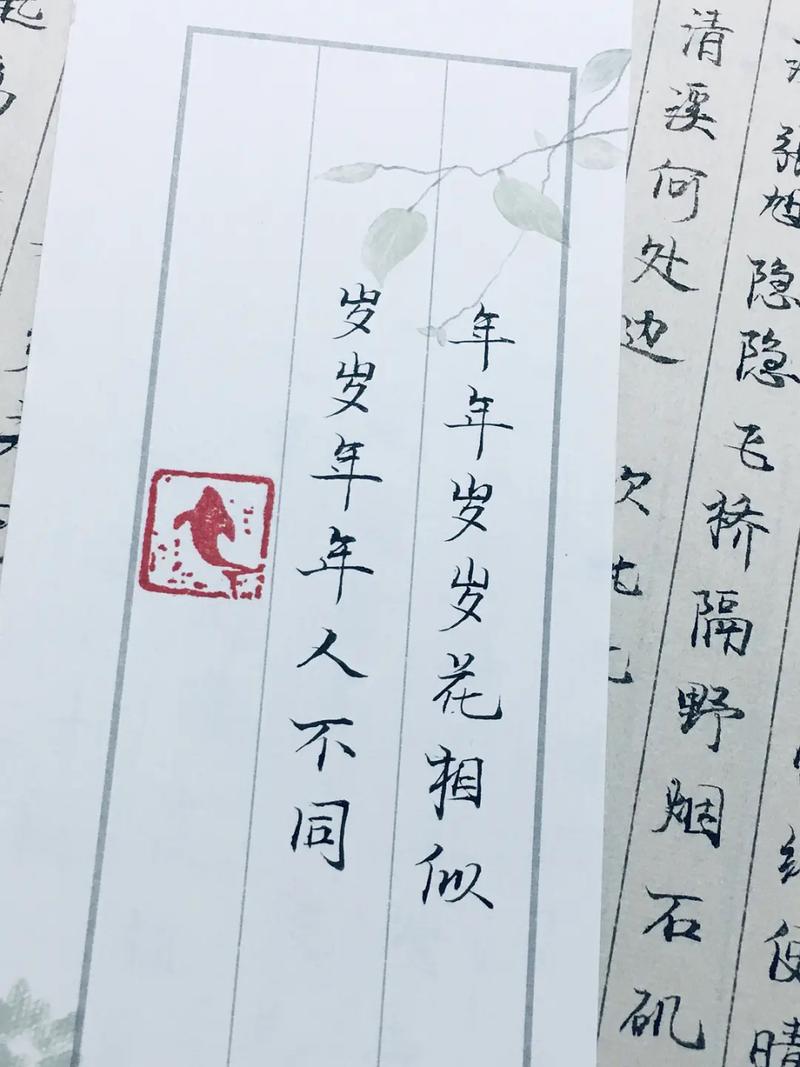 年年岁岁花相似
岁岁年年人不同
晴
张旭 隐隐飞桥隔野烟石矶
清溪何处边